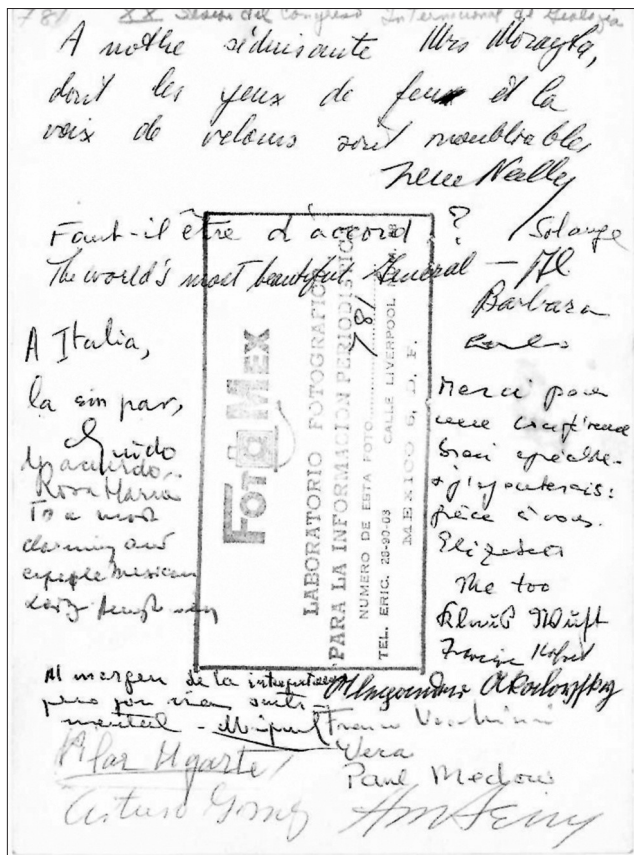 781 XX Sesion del Congreso Internacional de Geologia
A notre séduisante Mrs Morayta,
dont les yeux de feu et la
voix de velours sont inoubliables
Irene Neelly
Faut-il être d'accord ? Solange
The world's most beautiful General — Al
Barbara
A Italia,
la sin par,
Guido
de acuerdo..
Rosa Maria
To a most
charming and
capable Mexican
Lady
FOTOMEX
LABORATORIO FOTOGRAFICO
PARA LA INFORMACION PERIODISTICA
NUMERO DE ESTA FOTO 781
TEL. ERIC. 28-90-03 CALLE LIVERPOOL
MEXICO 6, D. F.
Merci pour
une conférence
bien
+ j'ajouterais:
grâce à vous.
Elizabeth
Me too
Al margen de la
pero por via senti-
mental - Miguel
Franco
Vera
Pilar Ugarte
Paul Medow
Arturo